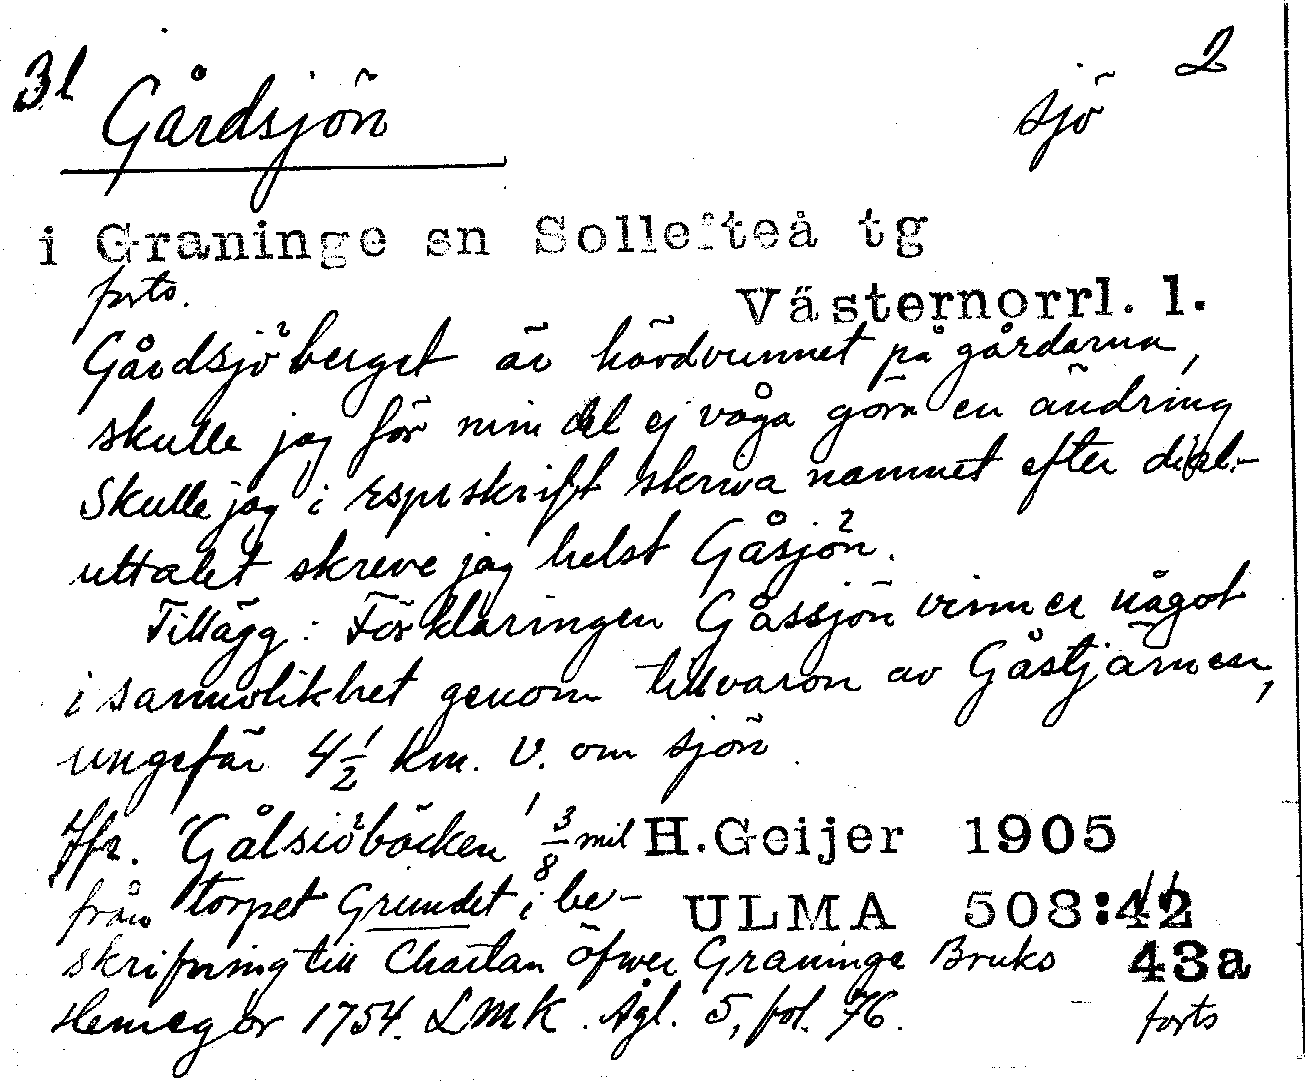 31 Gårdsjön sjö 2
i Graninge sn Sollefteå tg
forts.
Västernorrl. l.
Gårdsjöberget är hävdvunnet på gårdarna,
skulle jag för min del ej våga göra en ändring
Skulle jag i rspr skrift skriva namnet efter dial.-
uttalet skreve jag helst Gåsjön.
Tillägg: Förklaringen Gåssjön vinner något
i sannolikhet genom tillvaron av Gåstjärnen,
ungefär 4 1/2 km. V. om sjön
Jfr. 'Gålsiöbäcken' 3/8 mil H.Geijer 1905
från torpet Grundet i be- ULMA 508:42
skrifning till Chartan öfwer Graninge Bruks 43a
Hemegor 1754. LMK. Ågl. 5, fol. 76. forts